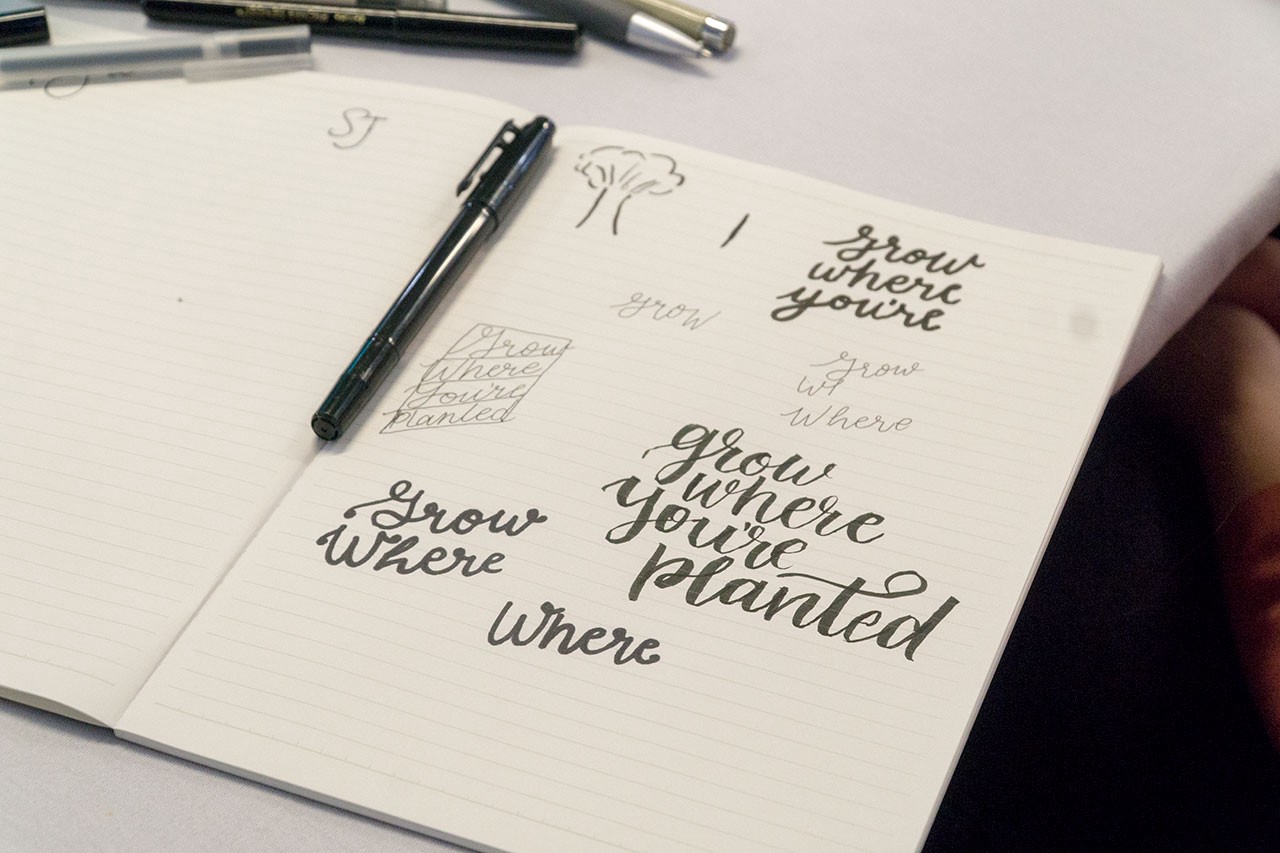 SJ
grow
where
you're
grow
Grow
Where
You're
planted
Grow
Wh
Where
grow
where
you're
planted
Grow
Where
Where